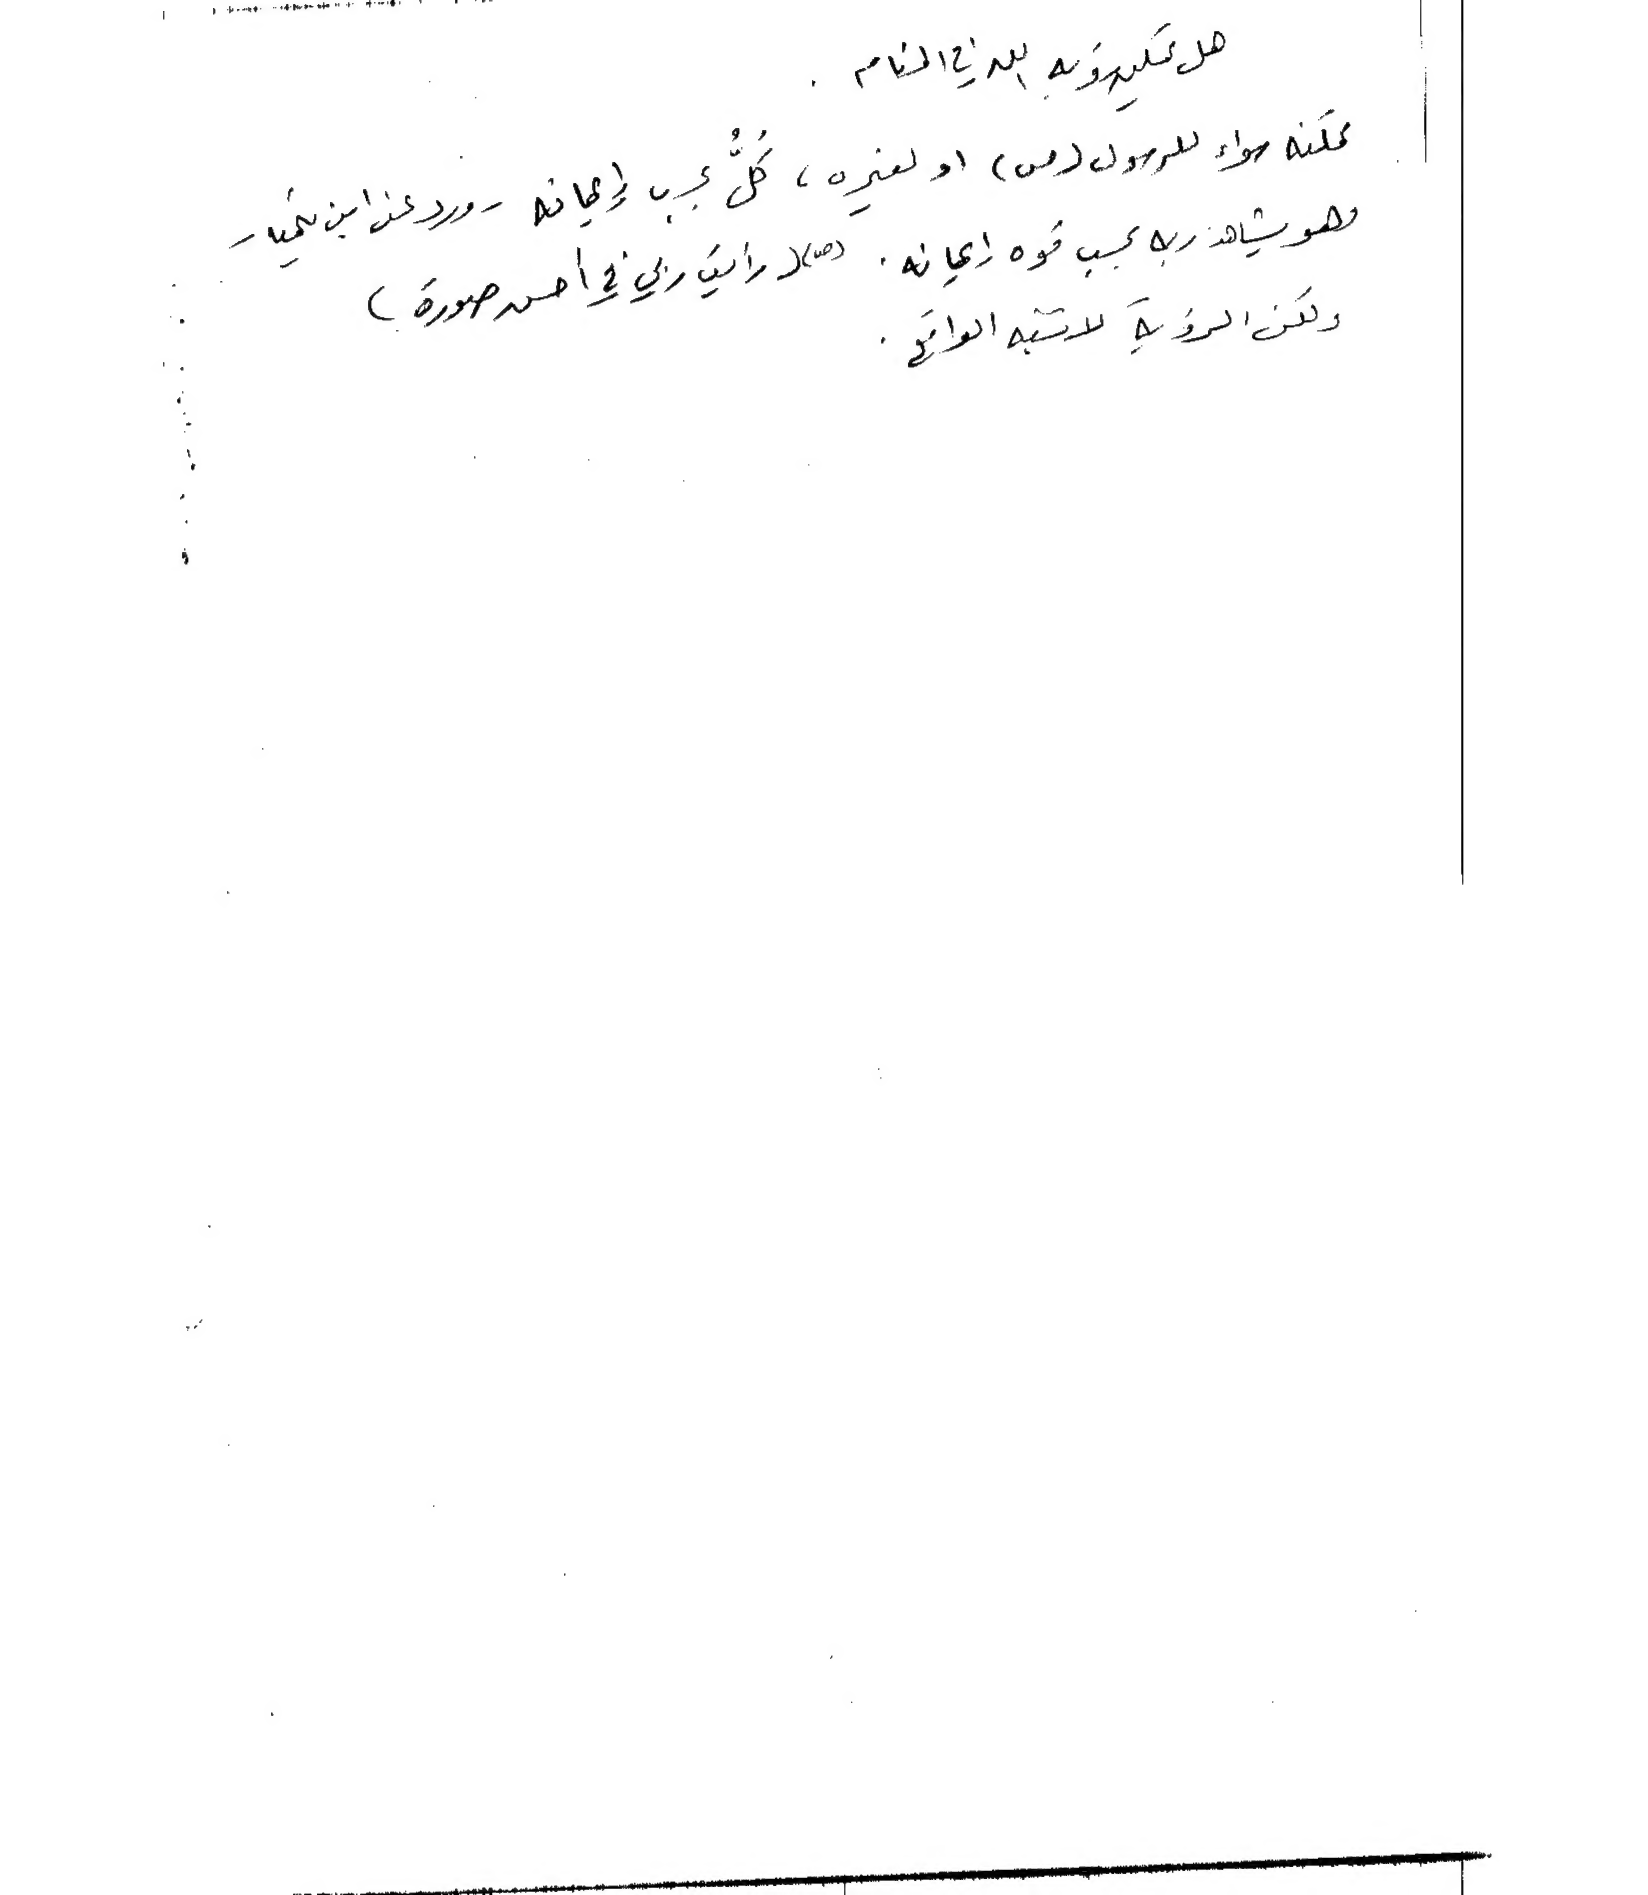 هل يمكن رؤيه الله في المنام .
ممكنه سواء للرسول (ص) او لغيره ، كُلٌّ بحسب إيمانه - ورد عن ابن
وهو يشاهد ربه بحسب قوه إيمانه . (ص) ( رأيت ربي في أحسن صورة )
ولكن الرؤية لا تشبه الواقع .